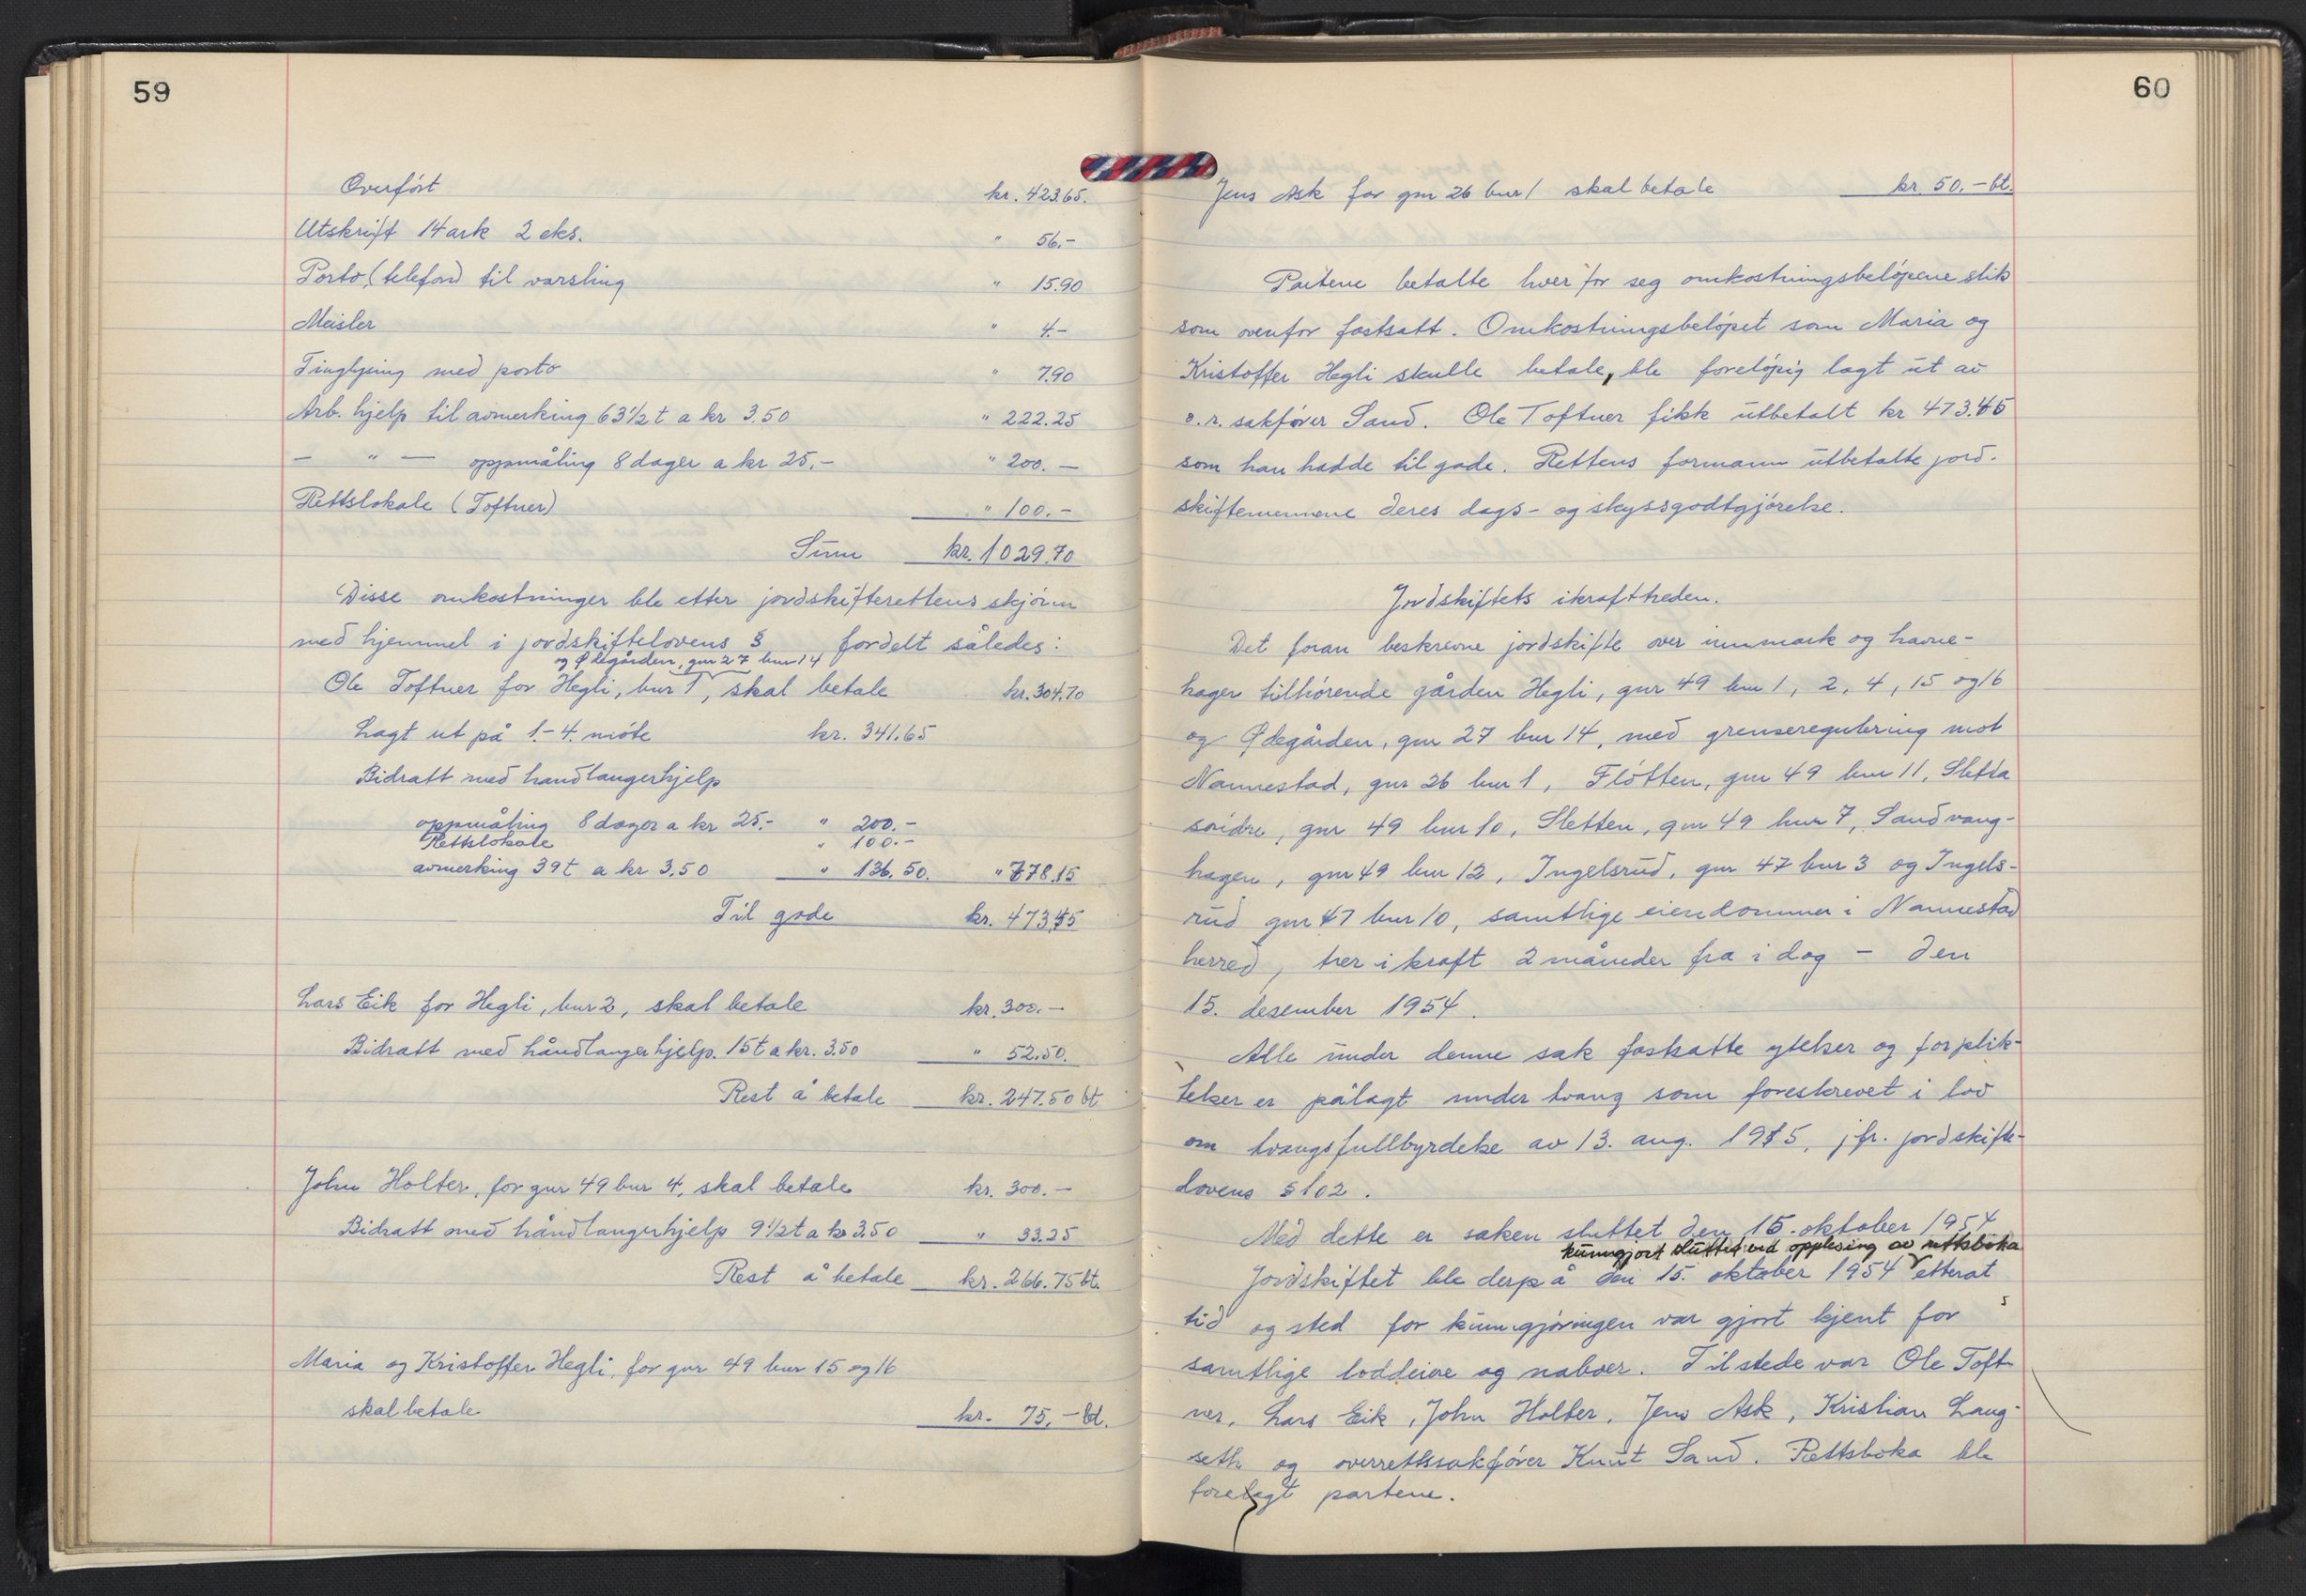 59
Overført kr. 423.65.
Utskrift 14 ark 2 eks. " 56.-
Porto (telefon) til varsling " 15.90
Meisler " 4.-
Tinglysing med porto " 7.90
Arb. hjelp til avmerking 63 1/2 t a kr 3.50 " 222.25
— " — oppmåling 8 dager a kr 25.- " 200.—
Rettslokale (Toftner) " 100.-
Sum kr. 1029.70
Disse omkostninger ble etter jordskifterettens skjønn
med hjemmel i jordskiftelovens § fordelt således:
og Ødegården, gnr 27 bnr 14
Ole Toftner for Hegli, bnr 1, skal betale kr. 304.70
Lagt ut på 1.-4. møte kr. 341.65
Bidratt med handlangerhjelp
oppmåling 8 dager a kr 25.- " 200.-
Rettslokale " 100.-
avmerking 39 t a kr 3.50 " 136.50. " 778.15
Til gode kr. 473.45
Lars Eik for Hegli, bnr 2, skal betale kr. 300.—
Bidratt med håndlangerhjelp. 15 t a kr. 3.50 " 52.50.
Rest å betale kr. 247.50 bt
John Holter, for gnr 49 bnr 4, skal betale kr. 300.—
Bidratt med håndlangerhjelp 9 1/2 t a kr 3.50 " 33.25
Rest å betale kr. 266.75 bt.
Maria og Kristoffer Hegli, for gnr 49 bnr 15 og 16
skal betale kr. 75.- bt.
60
Jens Ask for gnr 26 bnr 1 skal betale kr 50.- bt.
Partene betalte hver for seg omkostningsbeløpene slik
som ovenfor fastsatt. Omkostningsbeløpet som Maria og
Kristoffer Hegli skulle betale, ble foreløpig lagt ut av
o.r. sakfører Sand. Ole Toftner fikk utbetalt kr 473.45
som han hadde til gode. Rettens formann utbetalte jord-
skiftemennene deres dags- og skyssgodtgjørelse.
Jordskiftets ikrafttreden.
Det foran beskrevne jordskifte over innmark og havne-
hager tilhørende gården Hegli, gnr 49 bnr 1, 2, 4, 15 og 16
og Ødegården, gnr 27 bnr 14, med grenseregulering mot
Nannestad, gnr 26 bnr 1, Fløtten, gnr 49 bnr 11, Sletta
søndre, gnr 49 bnr 10, Sletten, gnr 49 bnr 7, Sandvang-
hagen, gnr 49 bnr 12, Ingelsrud, gnr 47 bnr 3 og Ingels-
rud gnr 47 bnr 10, samtlige eiendommer i Nannestad
herred, trer i kraft 2 måneder fra i dag - den
15. desember 1954.
Alle under denne sak fastsatte ytelser og forplik-
telser er pålagt under tvang som foreskrevet i lov
om tvangsfullbyrdelse av 13. aug. 1915, jfr. jordskifte-
lovens § 102.
Med dette er saken sluttet den 15. oktober 1954
kunngjort sluttet ved opplesing av rettsboka
Jordskiftet ble derpå den 15. oktober 1954 etterat
tid og sted for kunngjøringen var gjort kjent for
samtlige loddeiere og naboer. Tilstede var Ole Toft-
ner, Lars Eik, John Holter, Jens Ask, Kristian Lang-
seth og overrettssakfører Knut Sand. Rettsboka ble
forelagt partene.